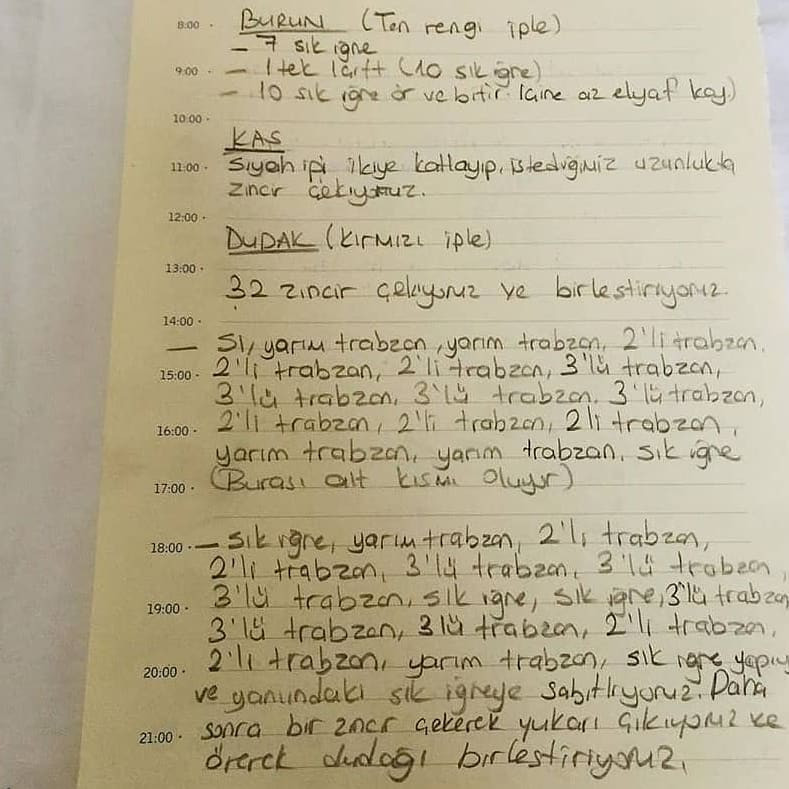 8:00 BURUN (Ten rengi iple)
– 7 sık iğne
9:00 – 1 tek 1 çift (10 sık iğne)
– 10 sık iğne ör ve bitir. İçine az elyaf koy.)
10:00
KAŞ
11:00 Siyah ipi ikiye katlayıp, istediğimiz uzunlukta
zincir çekiyoruz.
12:00
DUDAK (Kırmızı iple)
13:00
32 zincir çekiyoruz ve birleştiriyoruz.
14:00
– Sı, yarım trabzan, yarım trabzan, 2'li trabzan,
15:00 2'li trabzan, 2'li trabzan, 3'lü trabzan,
3'lü trabzan, 3'lü trabzan, 3'lü trabzan,
16:00 2'li trabzan, 2'li trabzan, 2li trabzan,
yarım trabzan, yarım trabzan, sık iğne
17:00 (Burası alt kısmı oluyor)
18:00 – Sık iğne, yarım trabzan, 2'li trabzan,
2'li trabzan, 3'lü trabzan, 3'lü trabzan,
19:00 3'lü trabzan, sık iğne, sık iğne, 3'lü trabzan
3'lü trabzan, 3lü trabzan, 2'li trabzan,
20:00 2'li trabzan, yarım trabzan, sık iğne yapıy
ve yanındaki sık iğneye sabitliyoruz. Daha
21:00 sonra bir zncr çekerek yukarı çıkıyoruz ve
örerek dudağı birleştiriyoruz.